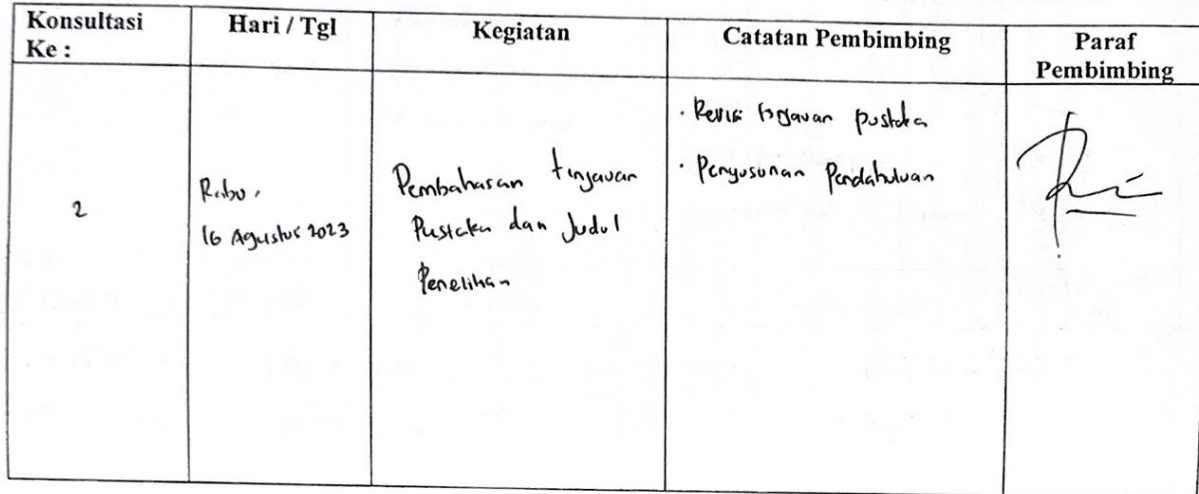 Konsultasi Ke :
Hari / Tgl
Kegiatan
Catatan Pembimbing
Paraf Pembimbing
2
Rabu,
16 Agustus 2023
Pembahasan tinjauan
Pustaka dan Judul
Penelitian
· Revisi tinjauan pustaka
· Penyusunan Pendahuluan